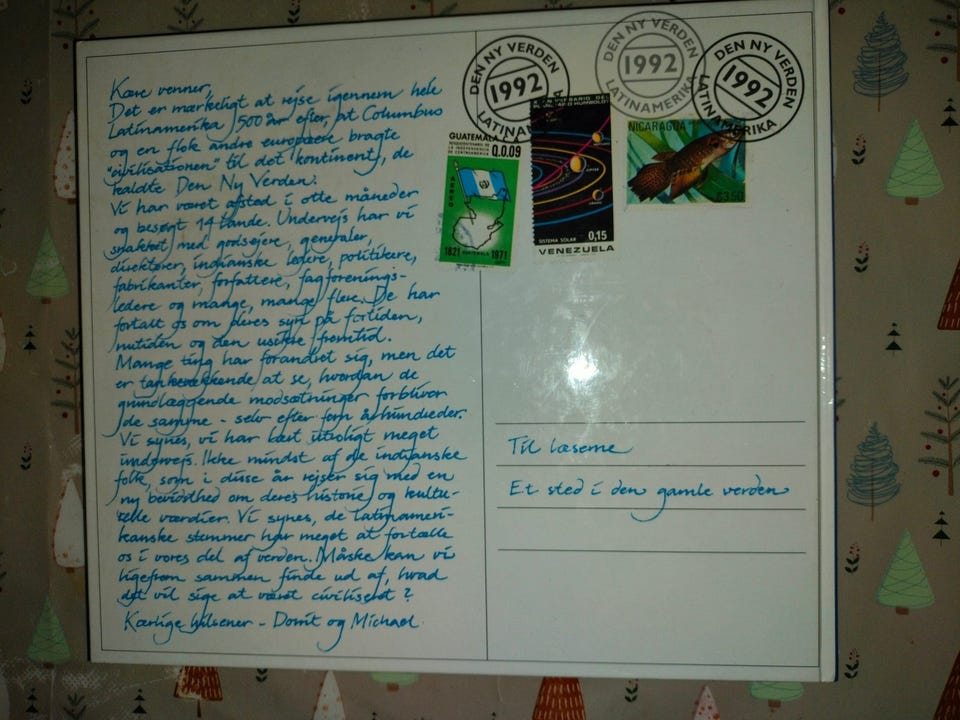 Kære venner,
Det er mærkeligt at rejse igennem hele
Latinamerika 500 år efter, at Columbus
og en flok andre europæere bragte
"civilisationen" til det kontinent, de
kaldte Den Ny Verden.
Vi har været afsted i otte måneder
og besøgt 14 lande. Undervejs har vi
snakket med godsejere, generaler,
direktører, indianske ledere, politikere,
fabrikanter, forfattere, fagforenings-
ledere og mange, mange flere. De har
fortalt os om deres syn på fortiden,
nutiden og den usikre fremtid.
Mange ting har forandret sig, men det
er tankevækkende at se, hvordan de
grundlæggende modsætninger forbliver
de samme - selv efter fem århundreder.
Vi synes, vi har lært utroligt meget
undervejs. Ikke mindst af de indianske
folk, som i disse år rejser sig med en
ny bevidsthed om deres historie og kultu-
relle værdier. Vi synes, de latinameri-
kanske stemmer har meget at fortælle
os i vores del af verden. Måske kan vi
ligefrem sammen finde ud af, hvad
det vil sige at være civiliseret?
Kærlige hilsener - Dorrit og Michael
DEN NY VERDEN
1992
LATINAM
DEN NY VERDEN
1992
LATINAMERIKA
DEN NY VERDEN
1992
LATINAMERIKA
GUATEMALA
Q.0.09
AEREO
1821 GUATEMALA 1971
SISTEMA SOLAR 0,15
VENEZUELA
NICARAGUA
Til læserne
Et sted i den gamle verden